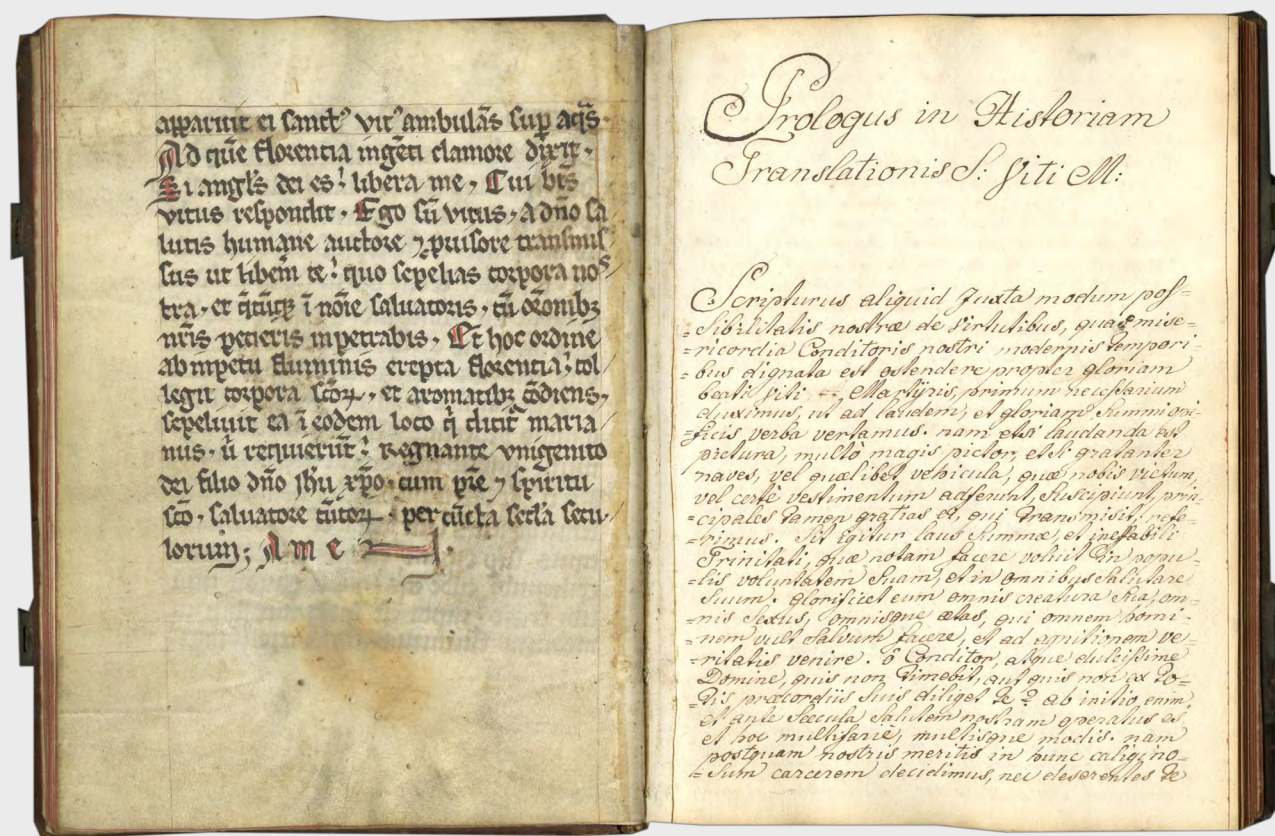 apparuit ei sanctꝰ vitꝰ ambulās sup aq̄s.
Ad quē florentia ingēti clamore dixit.
Si angl̄s dei es? libera me, Cui bt̄s
vitus respondit. Ego sū vitus, a dn̄o sa
lutis humane auctore ⁊ ꝓuisore transmis/
sus ut libem̄ te? quo sepelias corpora nos/
tra, et q̄cūqꝫ ī nōīe saluatoris, cū ōronibꝫ
nr̄is petieris inpetrabis. Et hoc ordine
ab inpetu fluminis erepta florentia? col
legit corpora scōꝝ, et aromatibꝫ cōdiens,
sepeliuit ea ī eodem loco q̄ dicit᷑ maria
nus. ū requierūt? Regnante vnigenito
dei filio dn̄o ihū xp̄o. cum pr̄e ⁊ spiritu
scō. saluatore cūtoꝝ. per cūcta secl̄a secu/
lorum; Ame
Prologus in Historiam
Translationis S: Viti M:
Scripturus aliquid Juxta modum pos=
=sibilitatis nostræ de Virtutibus, quas mise=
=ricordia Conditoris nostri modernis tempori=
=bus dignata est ostendere propter gloriam
beati Viti Martyris, primum necessarium
duximus, ut ad laudem, et gloriam summi opi=
=ficis verba vertamus. nam etsi laudanda est
pictura, multò magis pictor, etsi gratanter
naves, vel quælibet vehicula, quæ nobis victum,
vel certè vestimentum adferunt, suscipiunt, prin=
=cipales tamen gratias ei, qui transmisit, refe=
=rimus. Sit igitur laus Summæ, et ineffabili
Trinitati, quæ notam facere voluit in popu=
=lis voluntatem suam, et in omnibus salutare
suum. glorificet eum omnis creatura sua, om=
=nis sexus, omnisque ætas, qui omnem homi=
=nem vult salvum facere, et ad agnitionem ve=
=ritatis venire. ô Conditor, atque dulcissime
Domine, quis non timebit, aut quis non ex to=
=tis præcordiis suis diliget te? ab initio enim,
et ante sæcula salutem nostram operatus es,
et hoc multifariè, multisque modis. nam
postquam nostris meritis in hunc caligino=
=sum carcerem decidimus, nec deserentes te